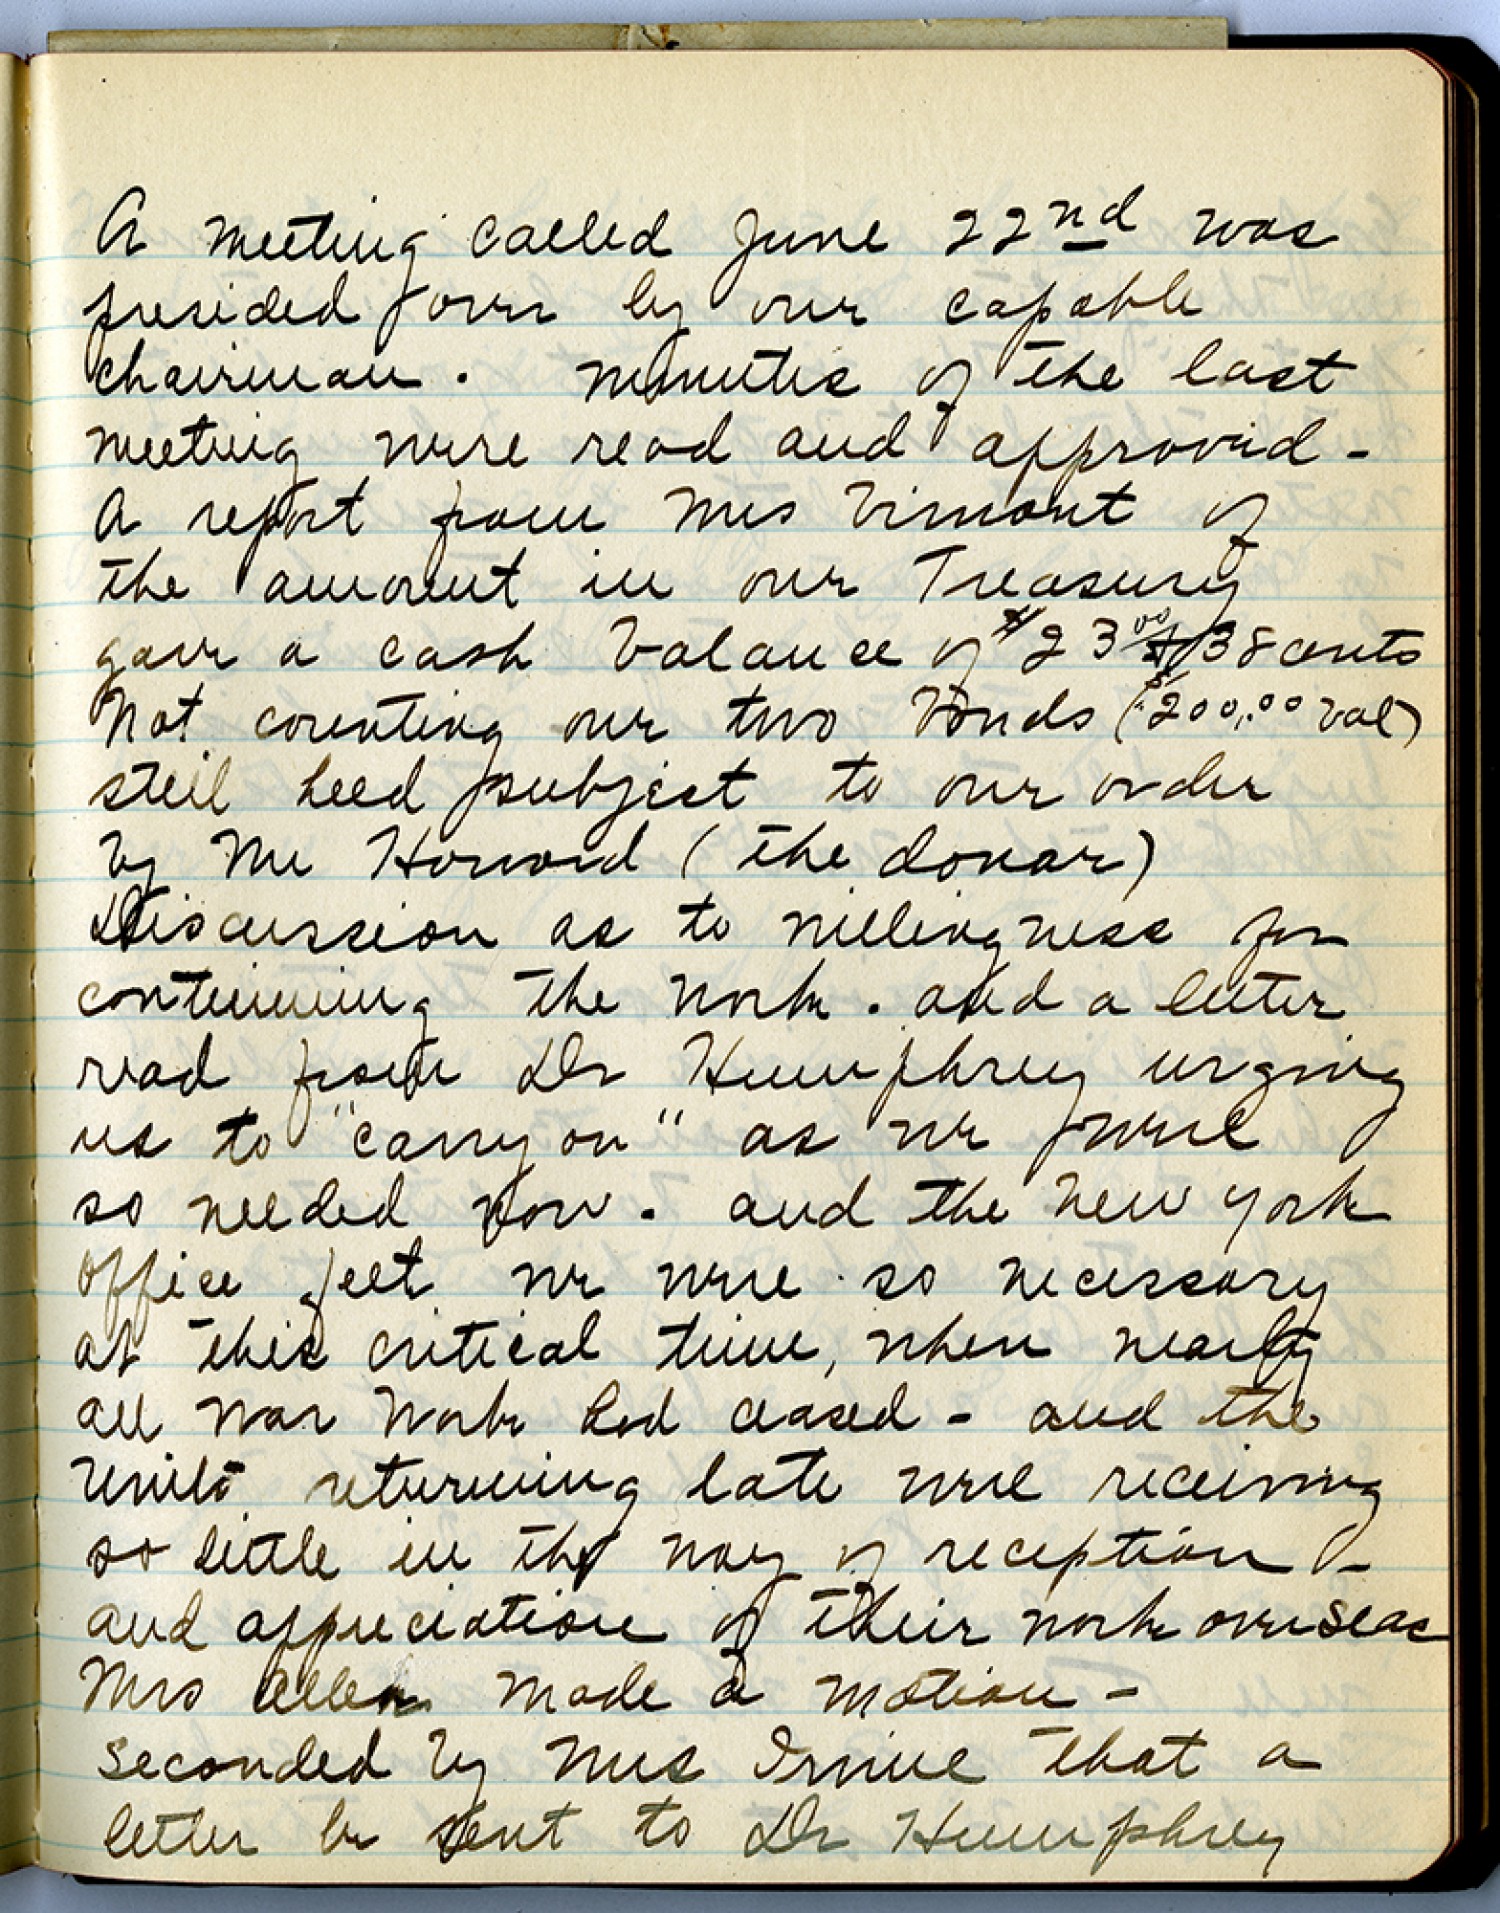 A meeting called June 22nd was
presided over by our capable
chairman. Minutes of the last
meeting were read and approved -
A report from Mrs Vimont of
the amount in our Treasury
gave a cash balance of $23.00 & 38 cents
Not counting our two Bonds ($200.00 val)
still held subject to our order
by Mr Howard (the donar)
Discussion as to willingness for
continuing the work. and a letter
read from Dr Humphrey urging
us to "carry on" as we were
so needed now. and the New York
office felt we were so necessary
at this critical time, when nearly
all War Work had ceased - and the
Units returning late were receiving
so little in the way of reception -
and appreciation of their work overseas
Mrs Allen made a motion -
seconded by Mrs Irvine that a
letter be sent to Dr Humphrey